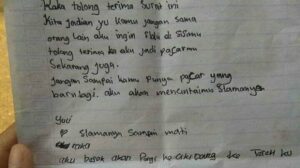 Kaka tolong terima Surat ini
Kita jadian yu kamu jangan sama
orang lain aku ingin
tolong terima ka aku jadi pacarmu
Sekarang juga.
Jangan Sampai kamu Punya pacar yang
baru lagi. aku akan mencintaimu Slamanya
Slamanya Sampai mati
aku besok akan Pergi ke